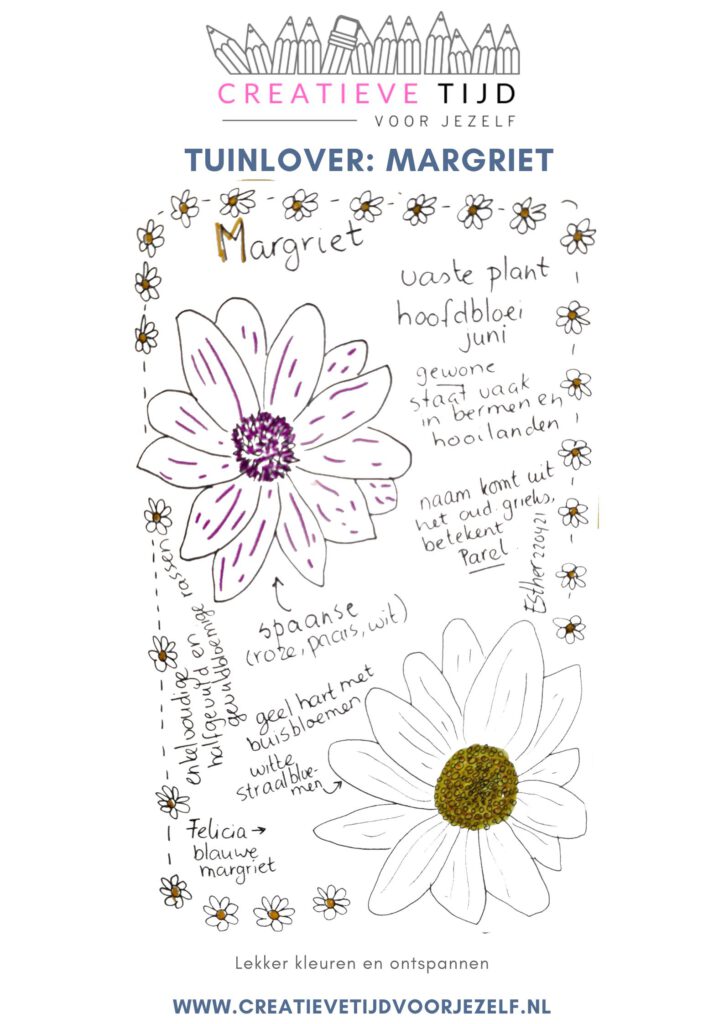 CREATIEVE TIJD
VOOR JEZELF
TUINLOVER: MARGRIET
Margriet
vaste plant
hoofdbloei
juni
gewone
staat vaak
in bermen en
hooilanden
naam komt uit
het oud grieks,
betekent
Parel
Esther 220421
spaanse
(roze, paars, wit)
enkelvoudige en
halfgevuld en
gevuldbloemige rassen
geel hart met
buisbloemen
witte
straalbloe-
men
Felicia →
blauwe
margriet
Lekker kleuren en ontspannen
WWW.CREATIEVETIJDVOORJEZELF.NL